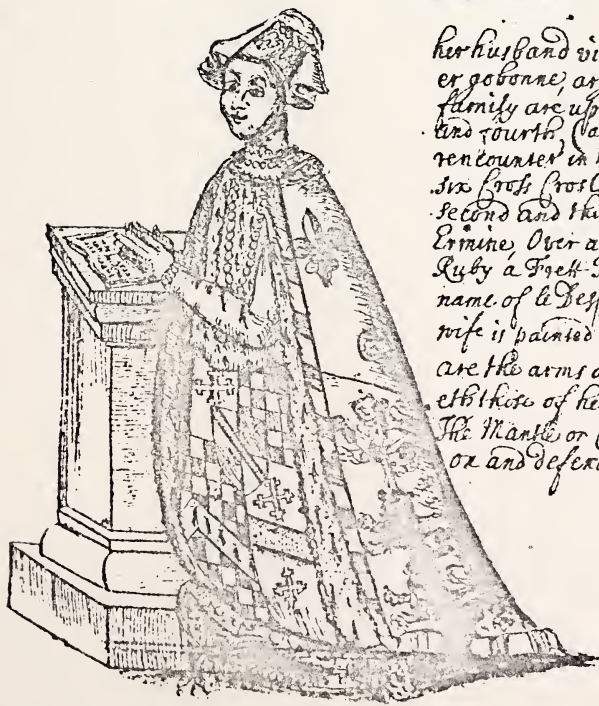 her husband vi
er gobonne, ar
family are up
and fourth
rencounter in
six Cross Crosl
second and thi
Ermine, Over a
Ruby a Frett
name of le Desp
wife is painted
are the arms o
eth those of he
The Mantle or
or and defen